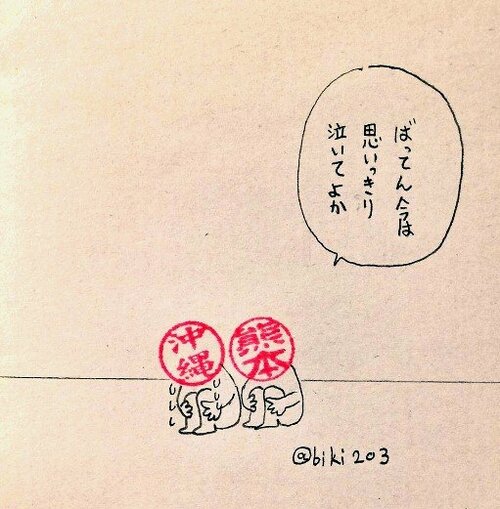 ばってん今は
思いっきり
泣いてよか
沖
縄
熊
本
@biki203